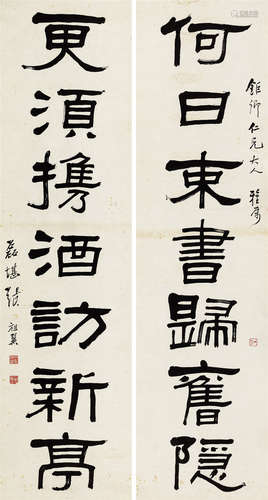 鉅卿仁兄大人 雅属
何日束書歸舊隱
更須携酒訪新亭
磊堪張祖翼